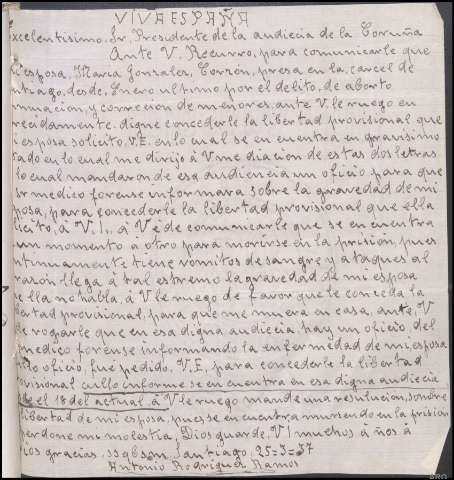 VIVA ESPAÑA
Excelentisimo. Sr. Presidente de la audiecia de la Coruña
Ante V. Recurro, para comunicarle que
esposa, Maria Gonzales, Torrón, presa en la, carcel de
ntiago, desde, Enero ultimo por el delito, de aborto
nnuacion, y correcion de menores. ante V. le ruego en
recidamente. digne concederle la libertad provisional que
i esposa solicito, V.E. en lo cual se en cuentra en gravisimo
tado en lo cual me dirijo á V me diacion de estas dos letras
lo cual mandaron de esa audiencia un oficio para que
sr medico forense informara sobre la gravedad de mi
posa, para concederle la libertad provisional que ella
licito, á V.I., á V é de comunicarle que se en cuentra
un momento a otro para morirse en la prision, pues
ntinuamente tiene vomitos de sangre y ataques al
razón llega á tal estremo la gravedad de mi esposa
e ella no habla, á V le ruego de favor que le conceda la
bertad provisional, para que me muera en casa, ante, V
de rogarle que en esa digna audiecia hay un oficio del
medico forense informando la enfermedad de mi esposa
oficio, fue pedido, V.E, para concederle la libertad
ovisional cullo informe se en cuentra en esa digna audiecia
de el 18 del actual á V le ruego mande una resulucion, sonbre
libertad de mi esposa, pues, se en cuentra muriendo en la prision
perdone mi molestia, Dios guarde, V I muchos á ños á
ios gracias. Santiago, 25=3=37
Antonio Rodriguez Ramos